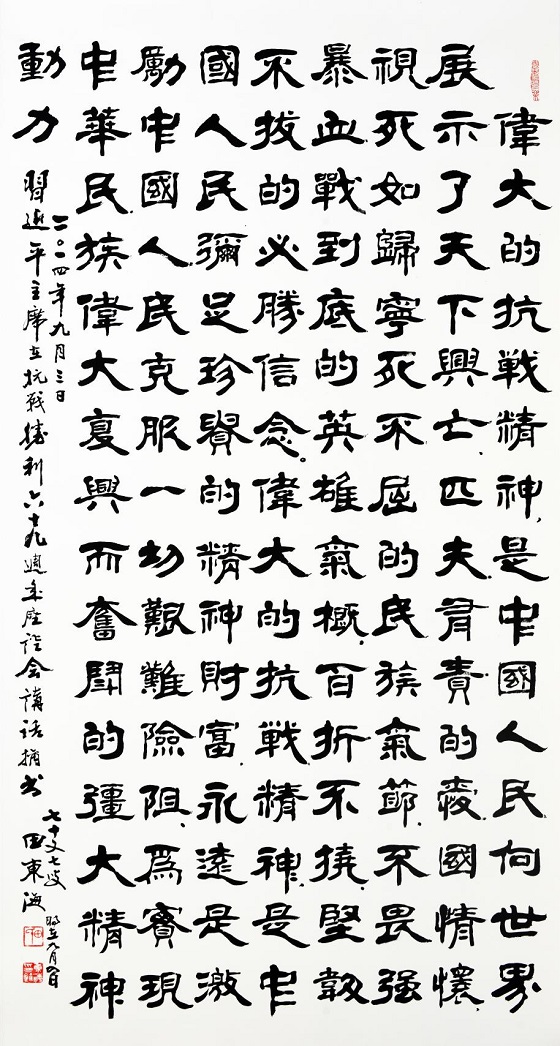 偉大的抗戰精神是中國人民向世界
展示了天下興亡匹夫有責的愛國情懷
視死如歸寧死不屈的民族氣節不畏强
暴血戰到底的英雄氣概百折不撓堅韌
不拔的必勝信念偉大的抗戰精神是中
國人民彌足珍貴的精神財富永遠是激
勵中國人民克服一切艱難險阻爲實現
中華民族偉大复興而奮鬥的彊大精神
動力
二〇一四年九月三日
習近平主席在抗戰勝利六十九週年座談会講話摘书
七十又七叟
田東海